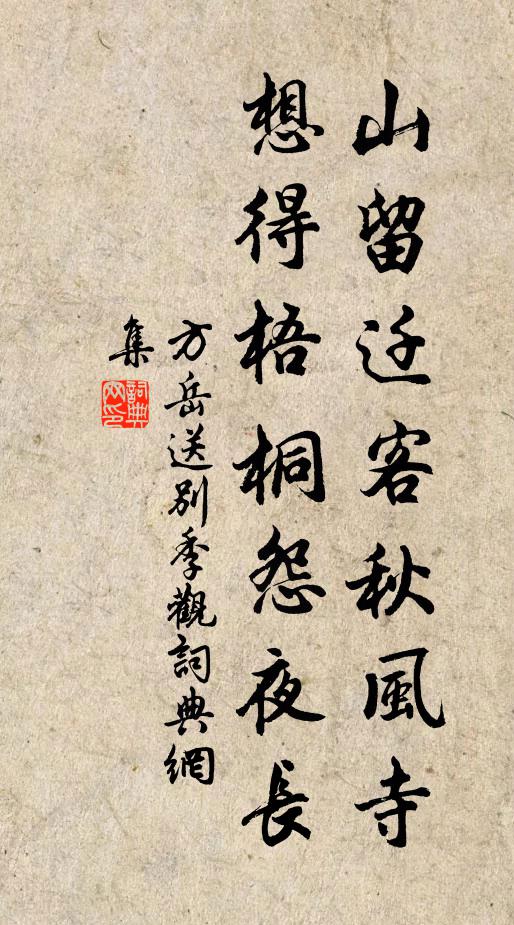 山留迁客秋風寺
想得梧桐怨夜長
方岳送別季觀詞典網
集
詞典网印